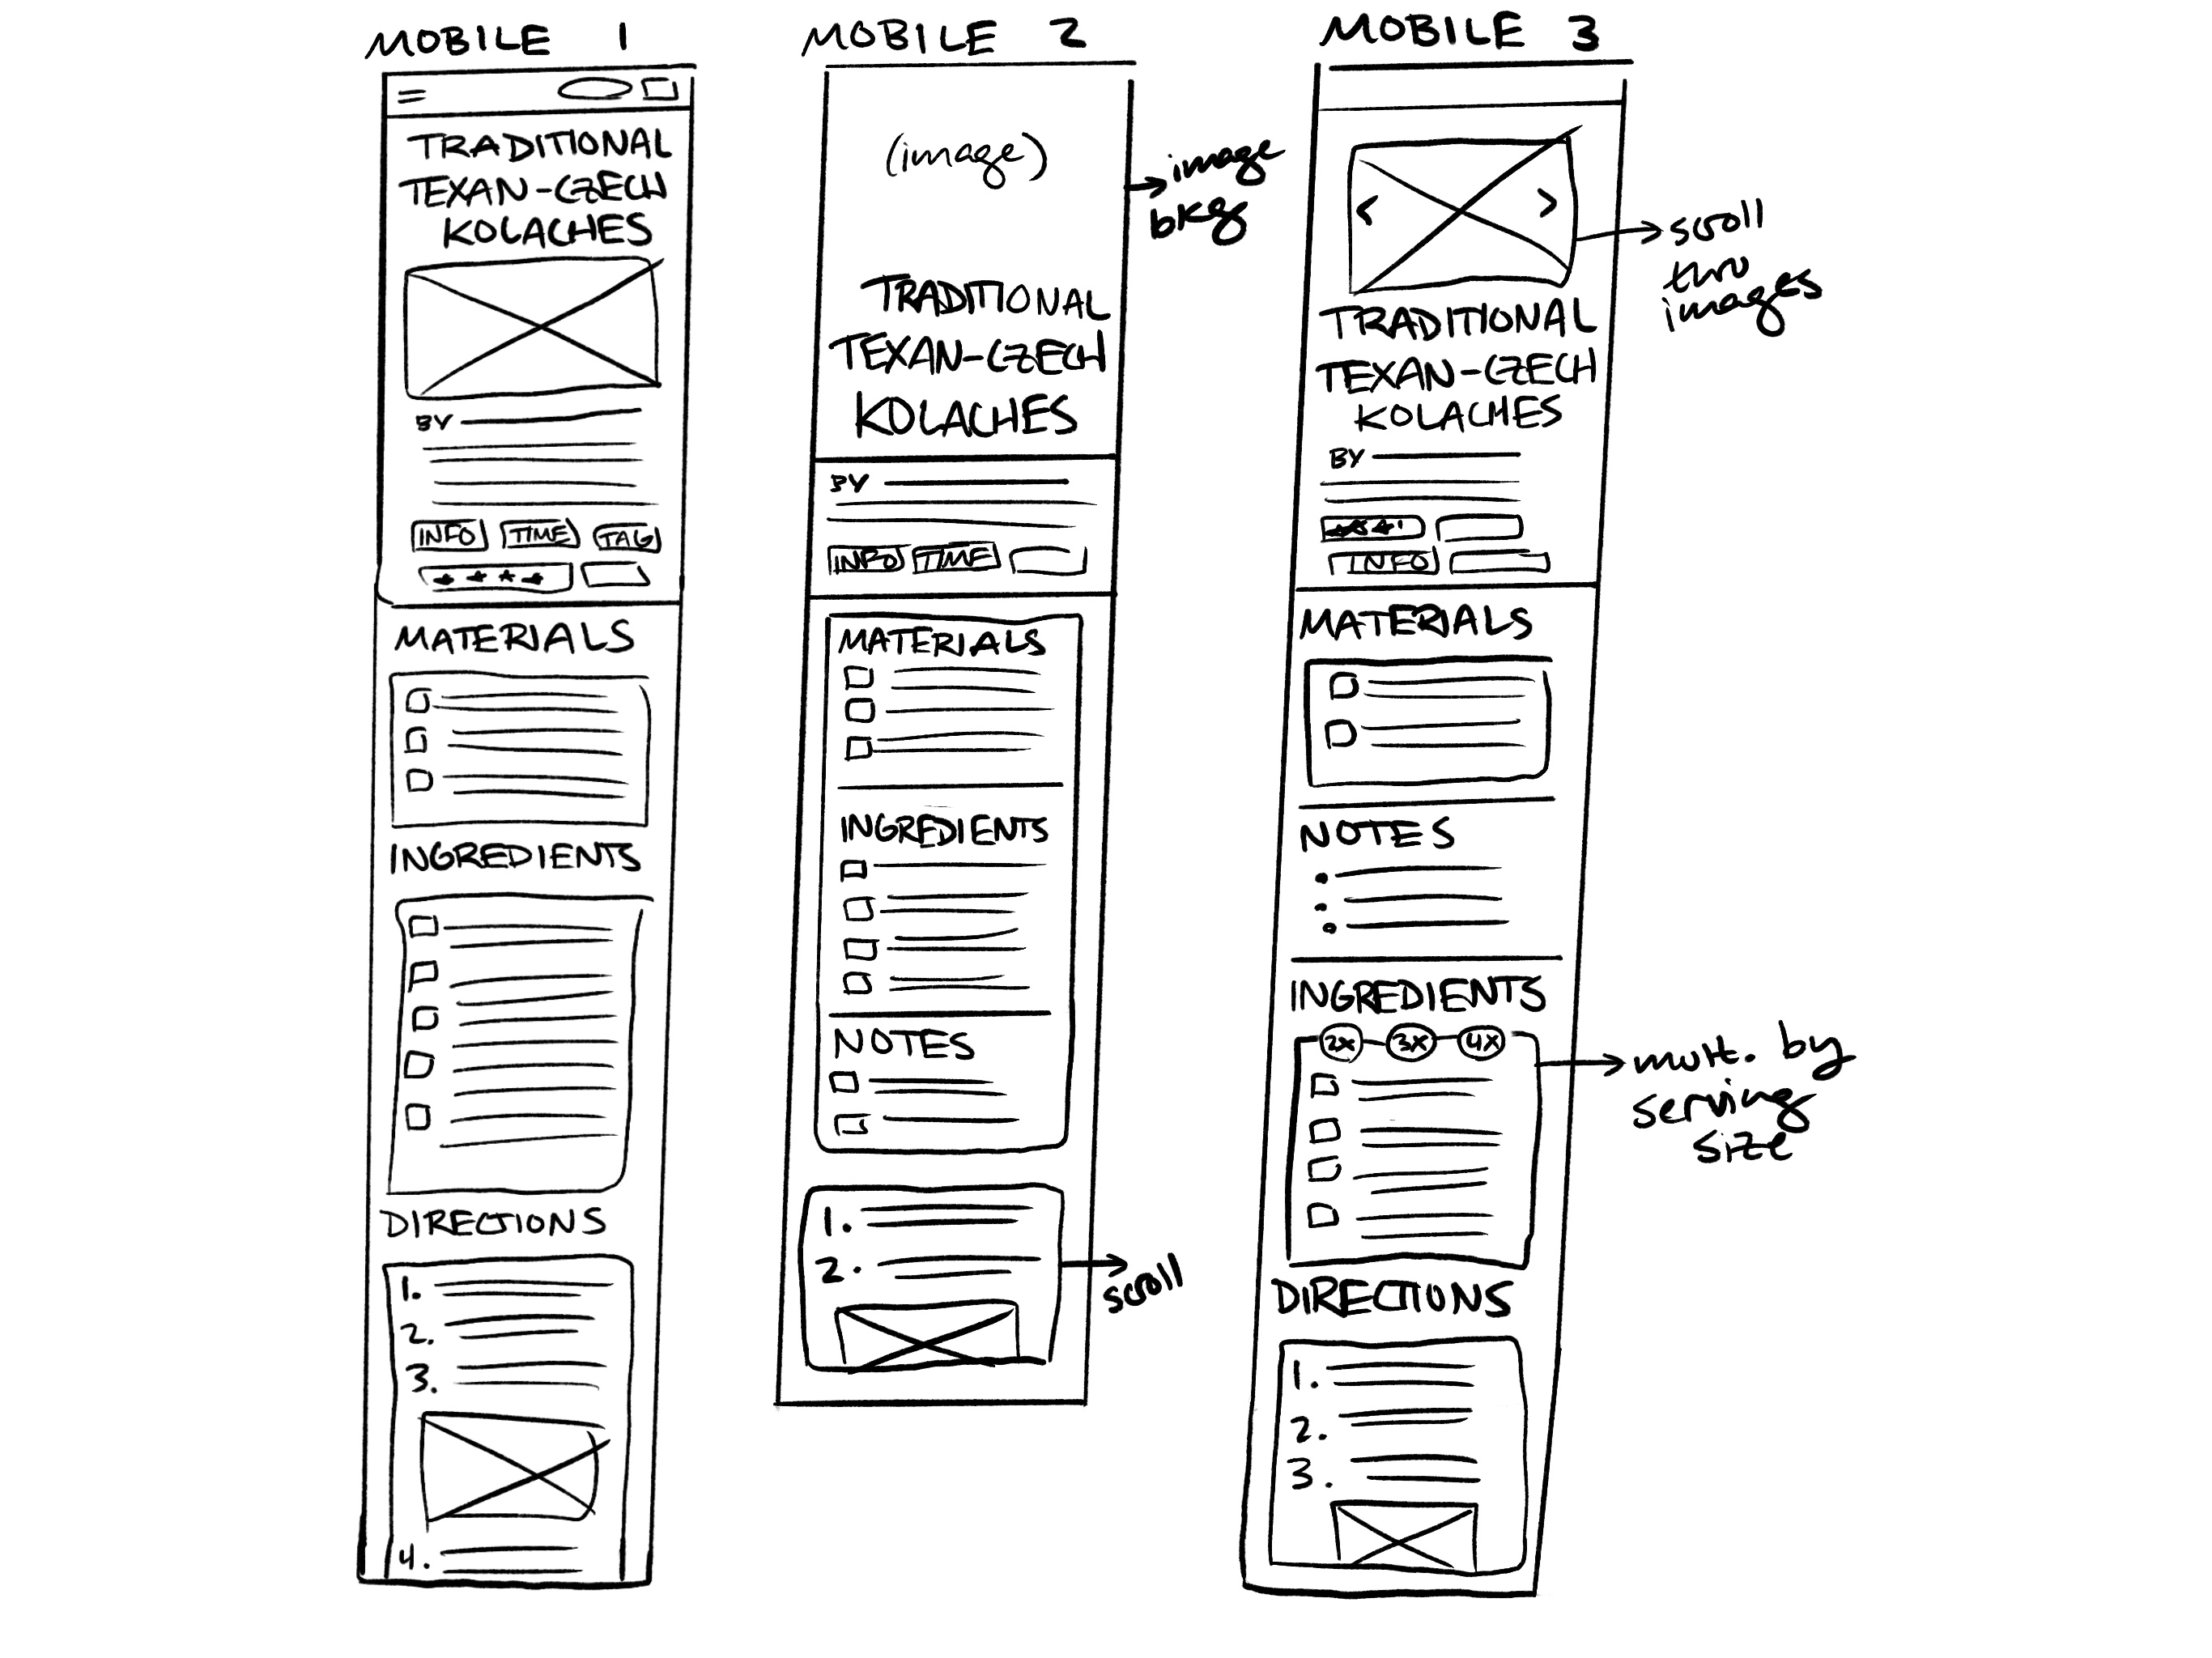 MOBILE 1
TRADITIONAL
TEXAN-CZECH
KOLACHES
BY
INFO TIME TAG
MATERIALS
INGREDIENTS
DIRECTIONS
1.
2.
3.
4.
MOBILE 2
(image)
image
bkg
TRADITIONAL
TEXAN-CZECH
KOLACHES
BY
INFO TIME
MATERIALS
INGREDIENTS
NOTES
1.
2.
scroll
MOBILE 3
< >
scroll
thru
images
TRADITIONAL
TEXAN-CZECH
KOLACHES
BY
INFO
MATERIALS
NOTES
INGREDIENTS
2X 3X 4X
mult. by
serving
size
DIRECTIONS
1.
2.
3.